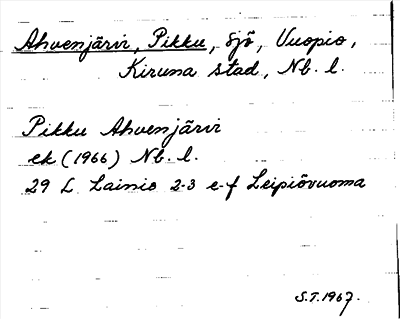 Ahvenjärvi, Pikku, sjö, Vuopio,
Kiruna stad, Nb. l.
Pikku Ahvenjärvi
ek (1966) Nb. l.
29 L Lainio 2-3 e-f Leipiövuoma
S.T. 1967.